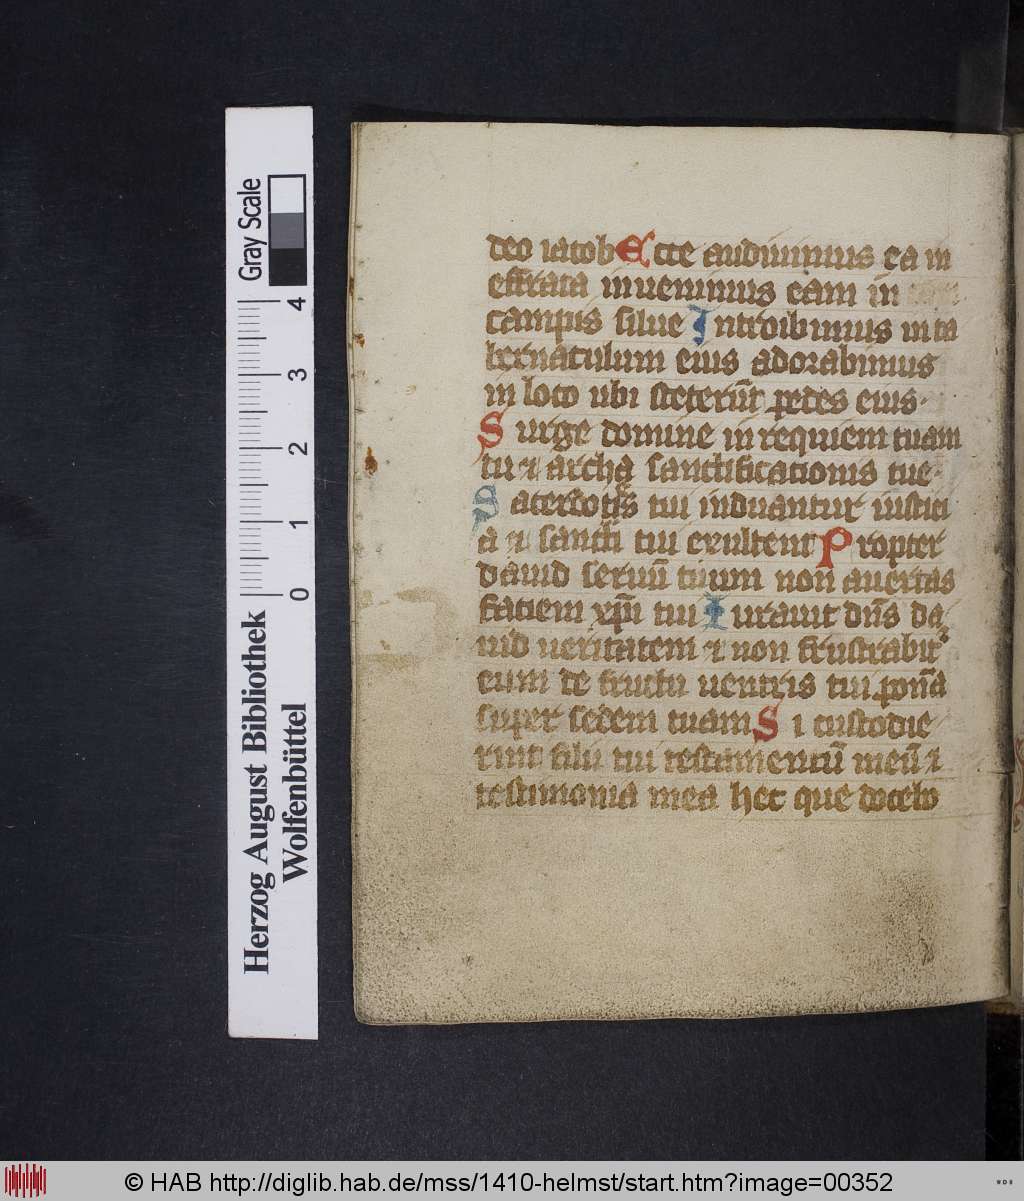 Herzog August Bibliothek
Wolfenbüttel
Gray Scale
0 1 2 3 4
deo iacob Ecce audiuimus ea in
effrata inuenimus eam in
campis silue Introibimus in ta
bernaculum eius adorabimus
in loco ubi steterūt pedes eius·
Surge domine in requiem tuam
tu ⁊ archa sanctificationis tue·
Sacerdotes tui induantur iustici
a ⁊ sancti tui exultent Propter
dauid seruū tuum non auertas
faciem xpi̅ tui Iurauit dn̅s da
uid ueritatem ⁊ non frustrabit᷑
eum de fructu uentris tui ponā
super sedem tuam Si custodie
rint filii tui testamentū meū ⁊
testimonia mea hec que docebo
© HAB http://diglib.hab.de/mss/1410-helmst/start.htm?image=00352